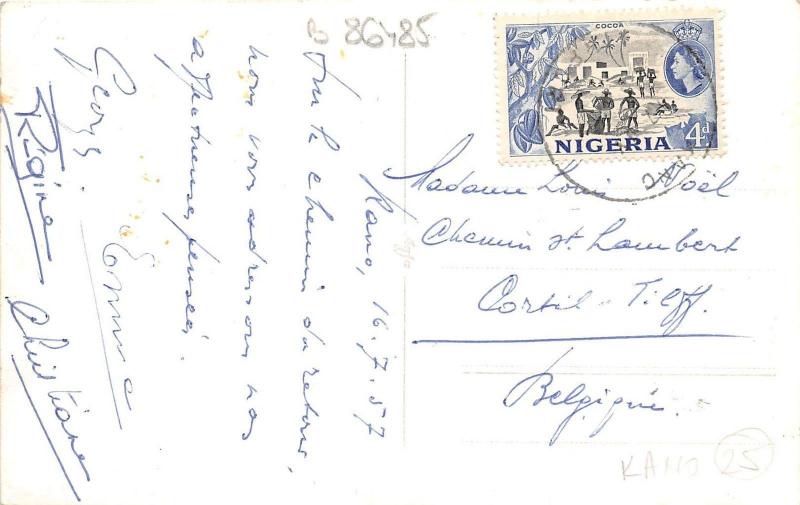 86485
Kano, 16.7.57
Sur le chemin du retour,
nous vous adressons nos
affectueuses pensées.
Georges
Emma
Régine
Christiane
COCOA
NIGERIA
4d
Madame Louis Noël
Chemin St. Lambert
Cortil-Tilff.
Belgique.
KANO
25